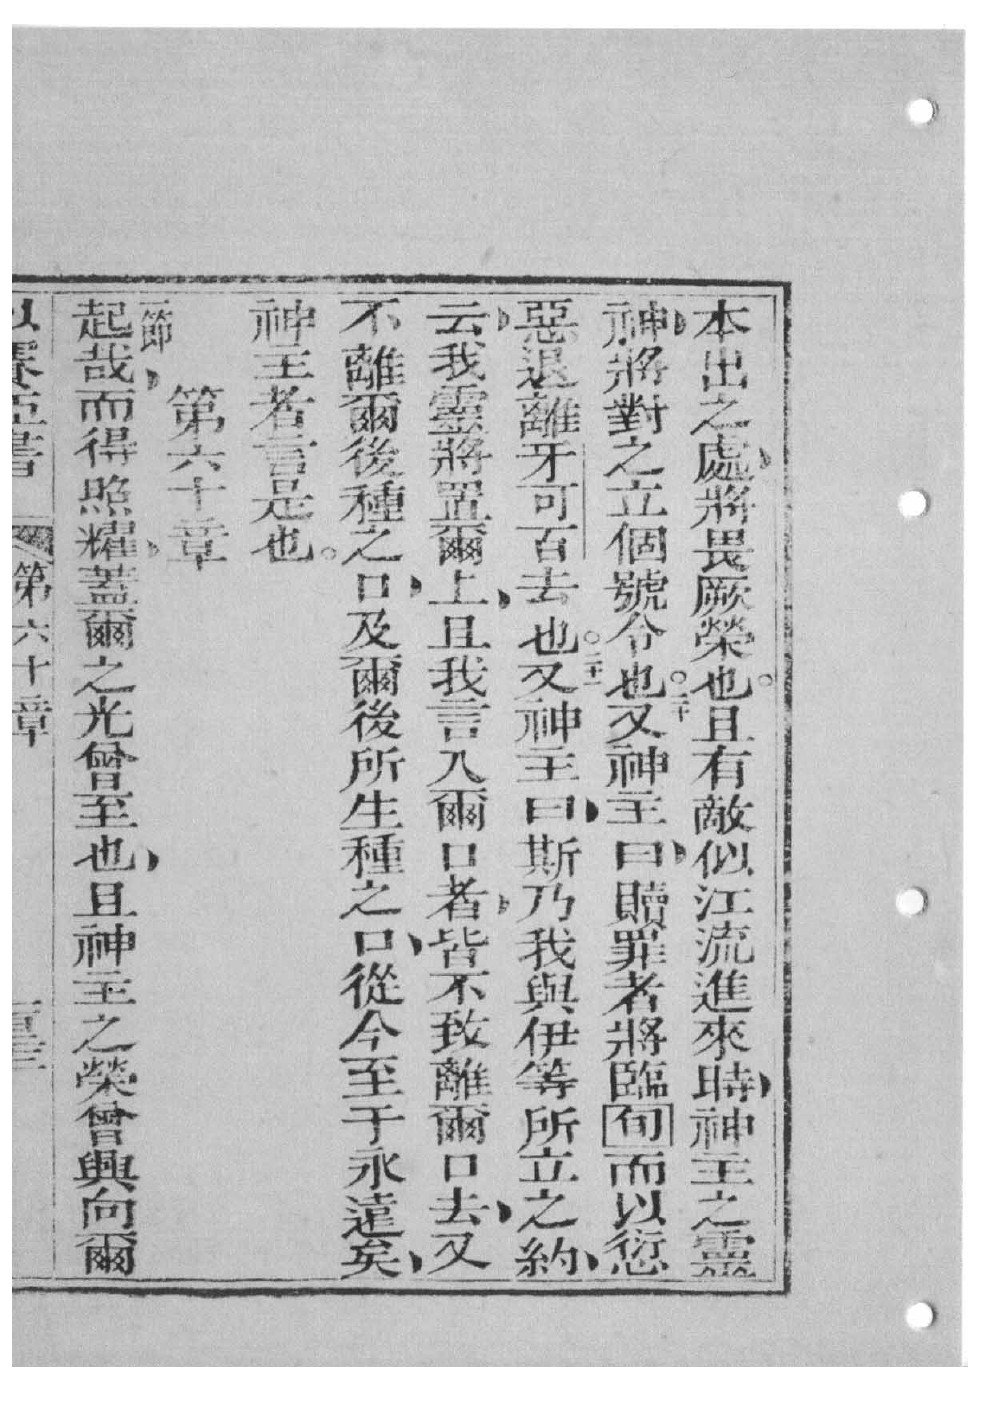 本出之處將畏厥榮也。且有敵似江流進來時神主之靈
神將對之立個號令也。二十又神主曰贖罪者將臨旬而以愆
惡退離牙可百去也。二十一又神主曰斯乃我與伊等所立之約
云我靈將置爾上且我言入爾口者皆不致離爾口去又
不離爾後種之口及爾後所生種之口從今至于永遠矣
神主者言是也。
第六十章
一節
起哉而得照耀蓋爾之光曾至也且神主之榮曾興向爾
以賽亞書 第六十章